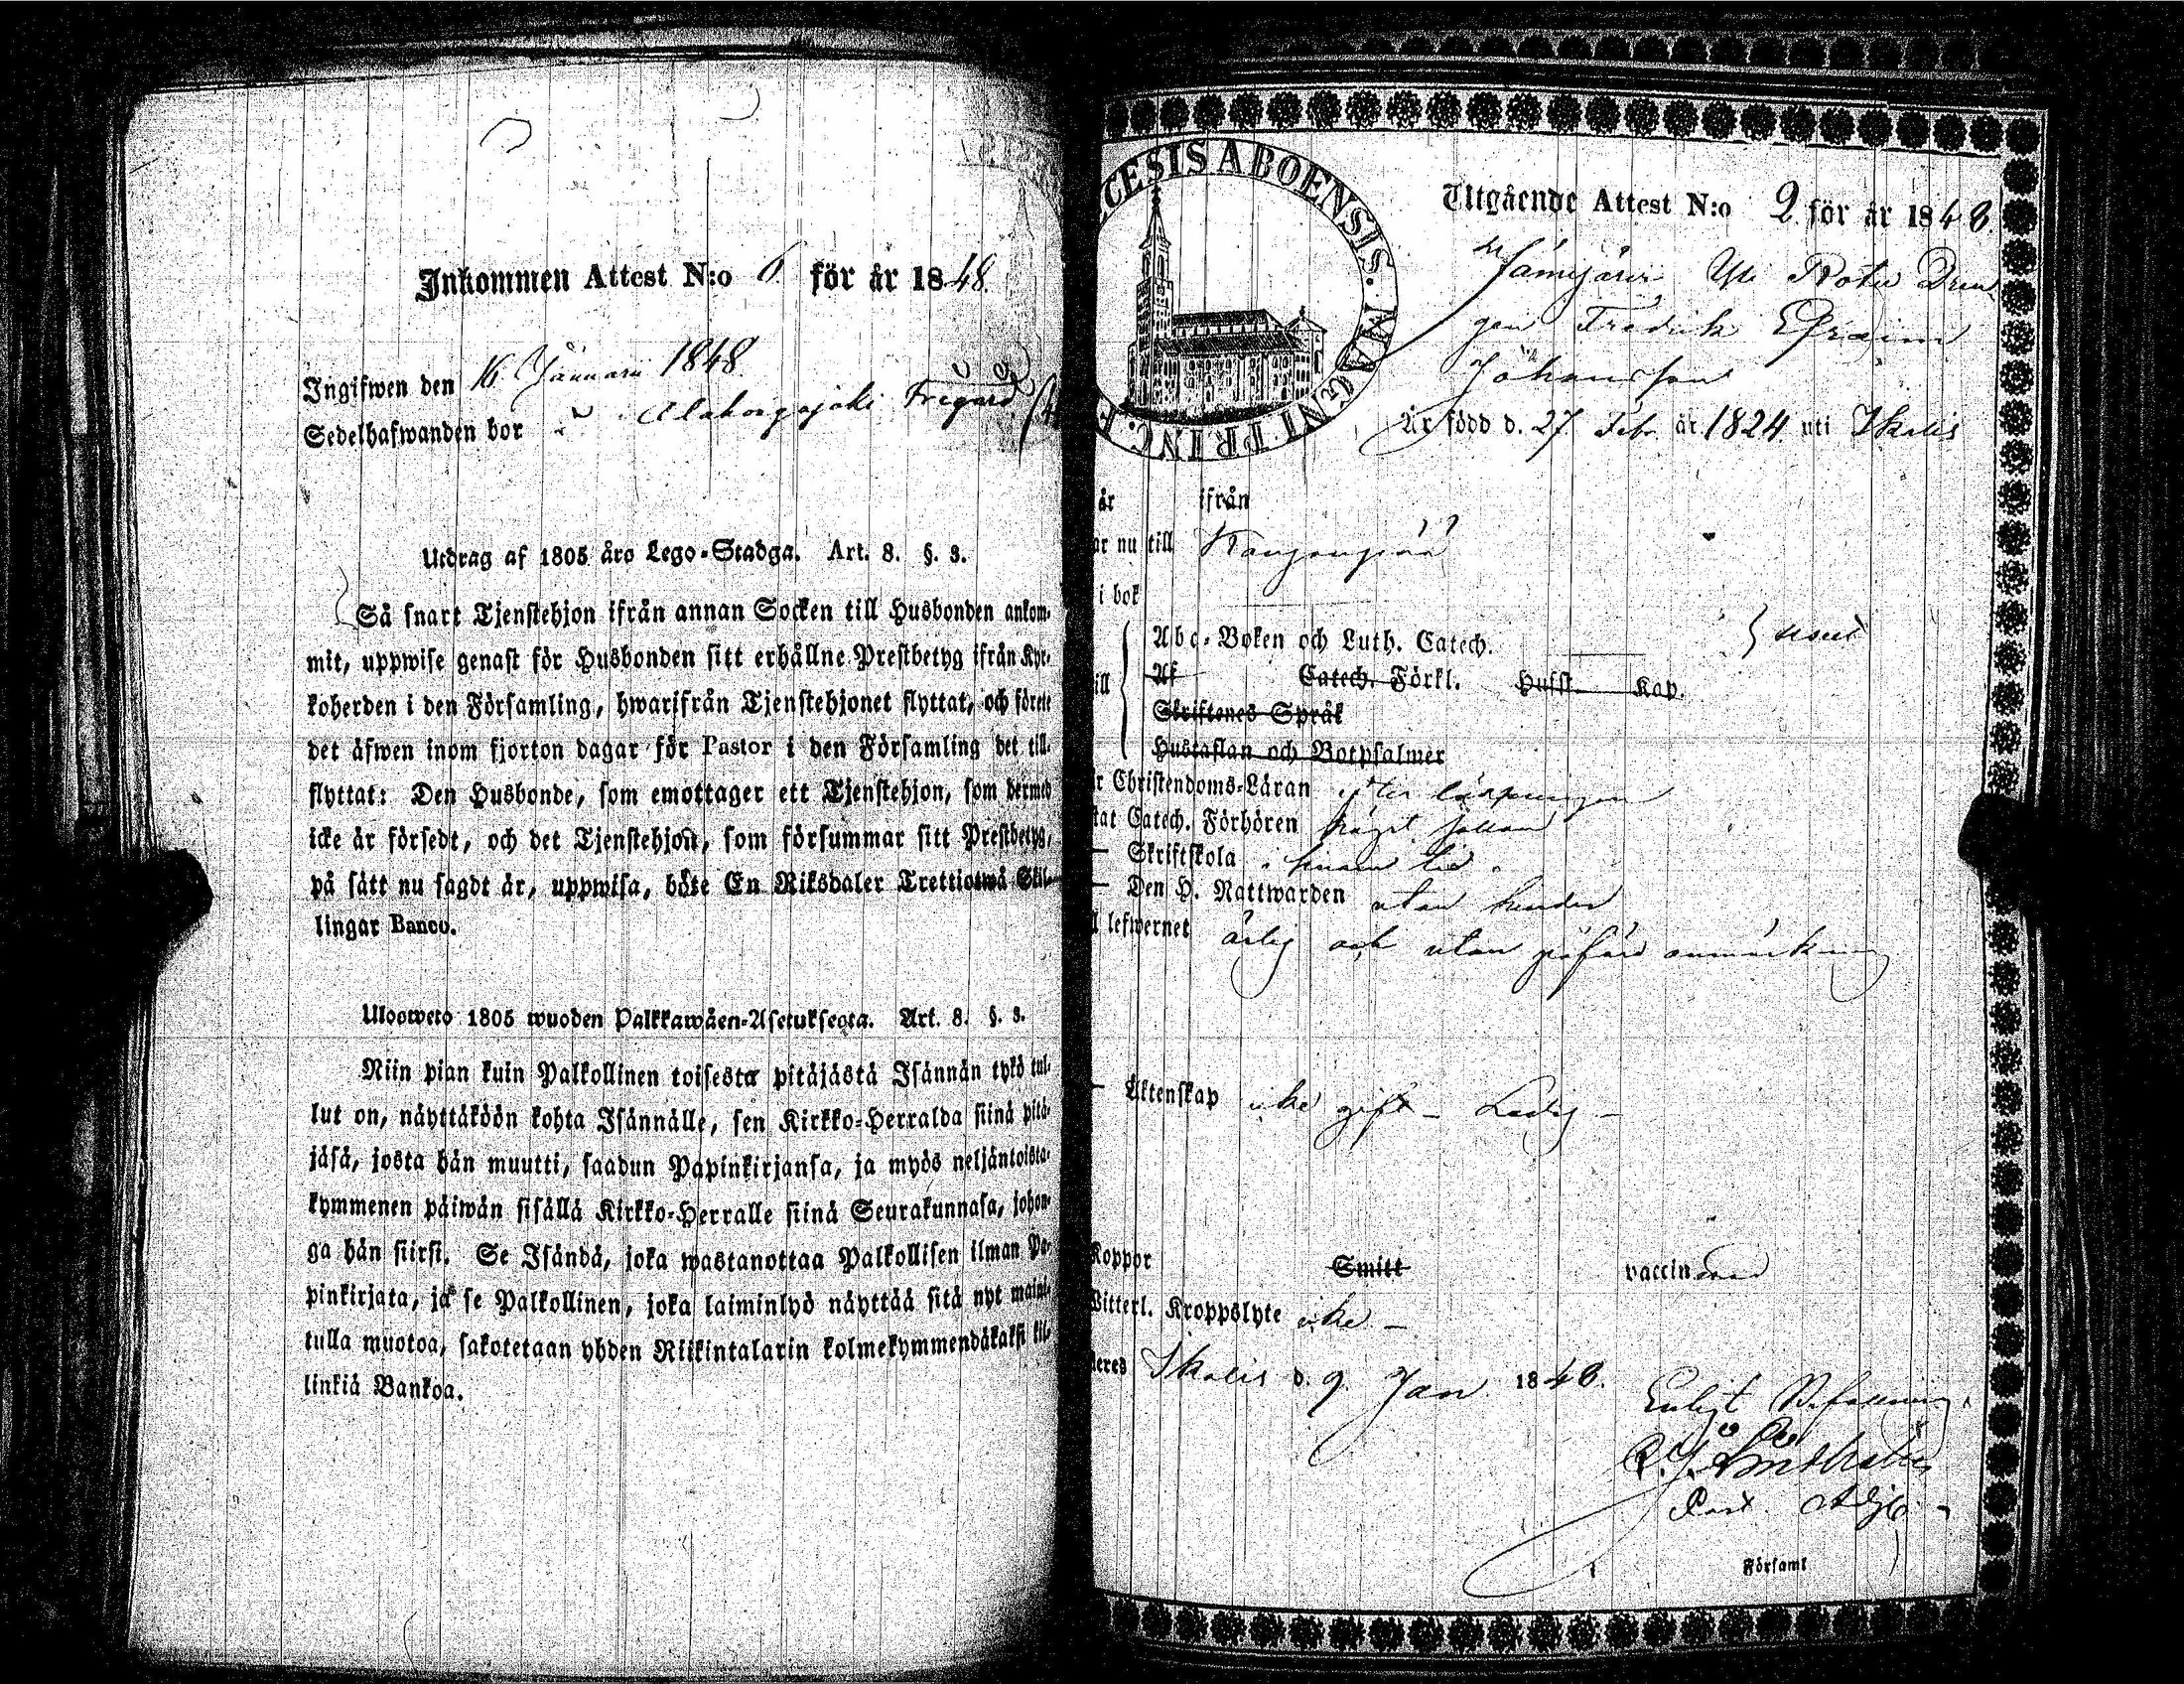 Inkommen Attest N:o 6. för år 1848.
Ingifwen den 16 Januari 1848.
Sedelhafwanden bor
Utdrag af 1805 års Lego-Stadga. Art. 8. §. 3.
Så snart Tjenstehjon ifrån annan Socken till Husbonden ankom-
mit, uppwise genast för Husbonden sitt erhållne Prestbetyg ifrån Kyr-
koherden i den Församling, hwarifrån Tjenstehjonet flyttat, och förete
det äfwen inom fjorton dagar för Pastor i den Församling det till-
flyttat: Den Husbonde, som emottager ett Tjenstehjon, som dermed
icke är försedt, och det Tjenstehjon, som försummar sitt Prestbetyg,
på sätt nu sagdt är, uppwisa, böte En Riksdaler Trettiotwå Skil-
lingar Banco.
Ulosweto 1805 wuoden Palkkawäen-Asetuksesta. Art. 8. §. 3.
Niin pian kuin Palkollinen toisesta pitäjästä Isännän tykö tul-
lut on, näyttäköön kohta Isännälle, sen Kirkko-Herralda siinä pitä-
jäsä, josta hän muutti, saadun Papinkirjansa, ja myös neljäntoista-
kymmenen päiwän sisällä Kirkko-Herralle siinä Seurakunnasa, johon-
ga hän siirsi. Se Isändä, joka wastanottaa Palkollisen ilman Pa-
pinkirjata, ja se Palkollinen, joka laiminlyö näyttää sitä nyt maini-
tulla muotoa, sakotetaan yhden Riikintalarin kolmekymmendäkaksi kil-
linkiä Bankoa.
CESIS ABOENSIS. MAGNI PRINC. F
Utgående Attest N:o 2 för år 1848.
Drän
gen Fredrik Efraim
Johansson
Är född d. 27 Febr. år 1824 uti Ikalis
år ifrån
ar nu till
i bok
Abc-Boken och Luth. Catech.
ill Af Catech. Förkl. Hussl. Kap.
Skriftenes Språk
Hustaflan och Botpsalmer
r Christendoms-Läran
tat Catech. Förhören
— Skriftskola
— Den H. Nattwarden utan hinder
l lefwernet ärlig och utan anmärkning
— Äktenskap icke gift – Ledig –
Koppor Smitt vaccinerad
Witterl. Kroppslyte icke –
eres Ikalis d. 9 Jan 1848.
Enligt Befallning,
Past. Adj.
Församl